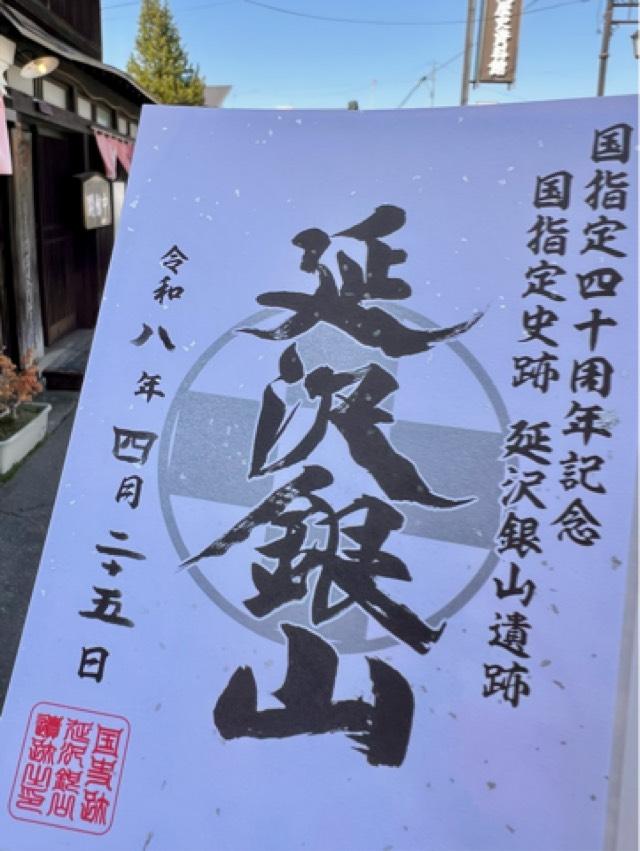 国指定四十周年記念
国指定史跡 延沢銀山遺跡
延沢銀山
令和八年四月二十五日
国史跡
延沢銀山
遺跡之印